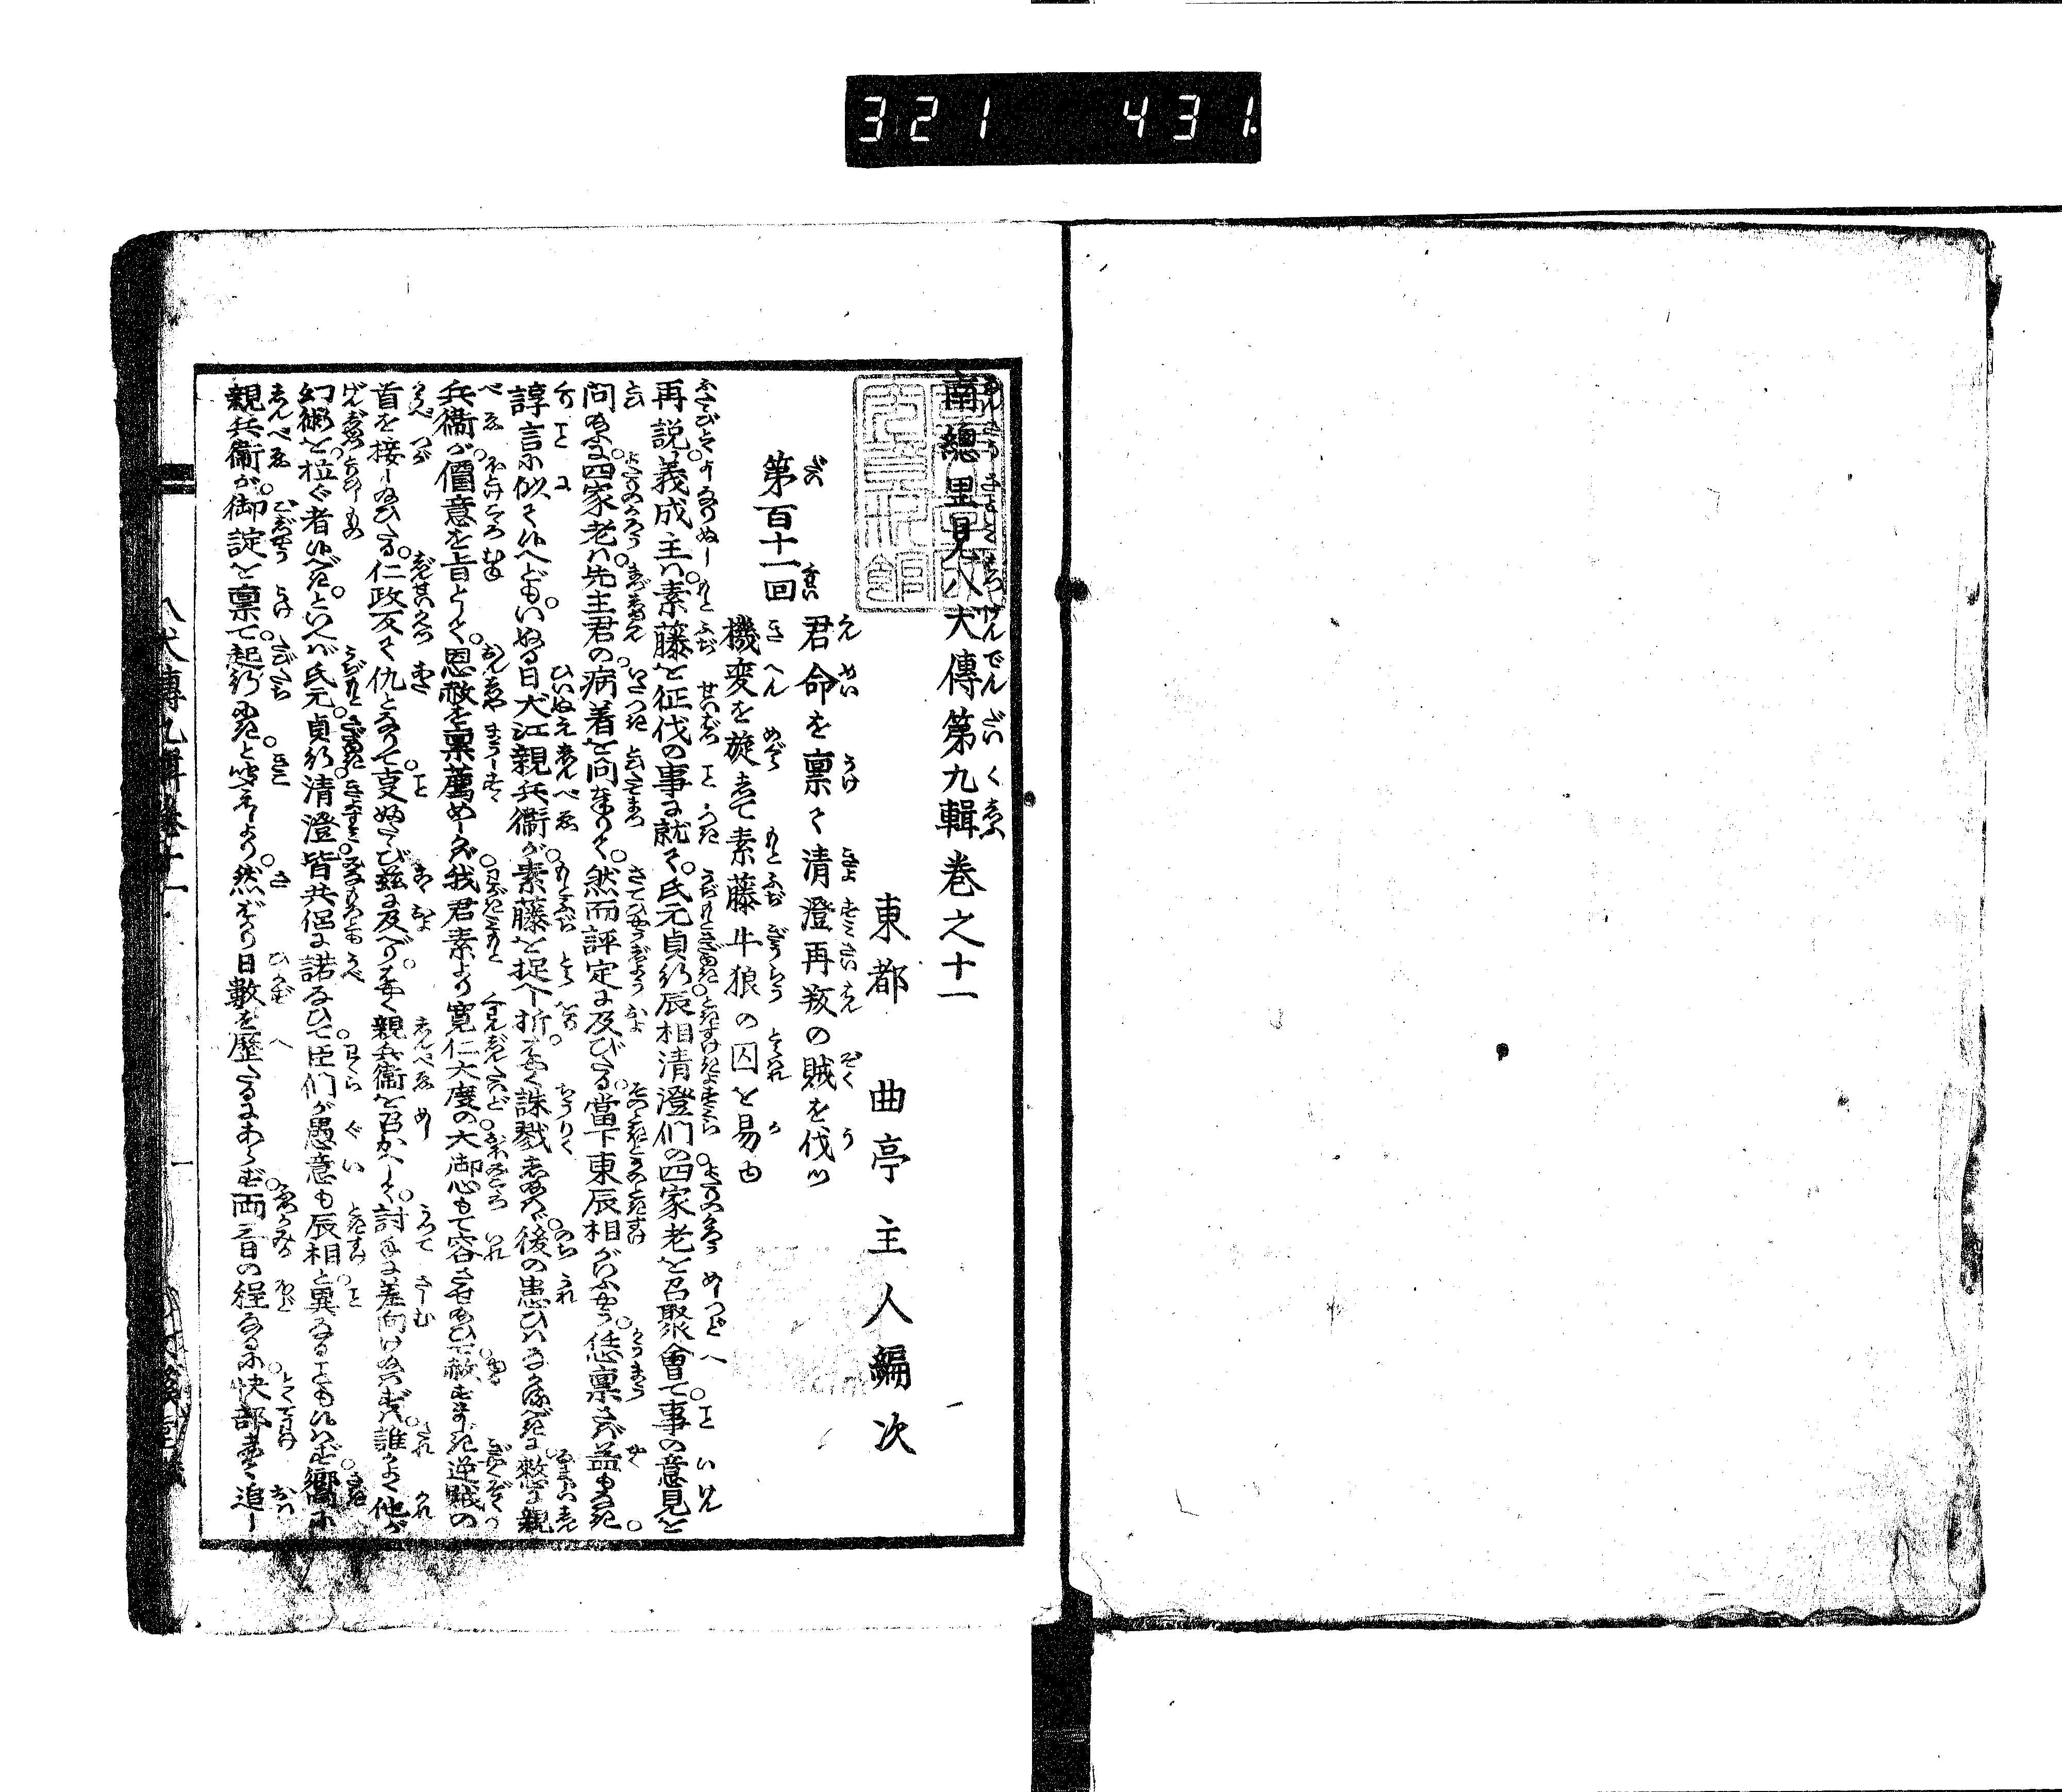 321 431.
南總里見八犬傳第九輯巻之十一
東都 曲亭主人編次
第百十一回
君命を禀て清澄再叛の賊を伐つ
機変を旋して素藤牛狼の囚を易ゆ
再説義成主ハ素藤を征伐の事に就て。氏元貞行辰相清澄們の四家老を召聚會て。事の意見を
問ふに。四家老ハ先主君の病着を問まつりて。然而評定に及びたる。當下東辰相がいふやう。恁禀さバ益もなき。
諄言に似て候へども。いぬる日犬江親兵衞が。素藤を捉へし折。はやく誅戮したまハゞ。後の患ひハなかるべきに。憖に親
兵衞が儘意を旨として。恩赦を禀薦めしかバ。我君素より寛仁大度の大御心もて容させ給ひて。赦すまじき逆賊の
首を接し給ひたる。仁政反て仇となりて。
親兵衞を召かへして。討手に差向け給ハずバ。誰かよく他が
幻術を拉ぐ者候べき。といへバ氏元。貞行。清澄。皆共侶に諾なひて。臣們が愚意も辰相と。異なることも候ハず。嚮に
親兵衞が。御諚を禀て。起行ふりより。然ばかり日數を歴たるにあらず。両三日の程なるに。快部 追し
八犬傳九輯巻十一
一